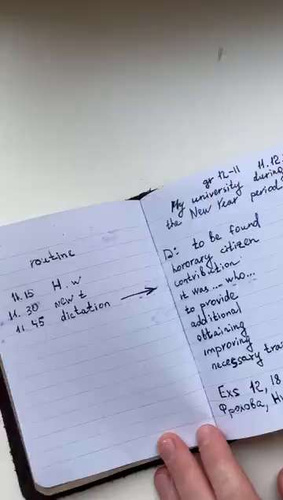 routine
11.15 H.w
11.30 new t
11.45 dictation
gr 12-11 11.12
My university during
the New Year period
D: to be found
honorary citizen
contribution
it was ... who...
to provide
additional
obtaining
improving
necessary tra
Exs 12, 18
Фролова, Ни